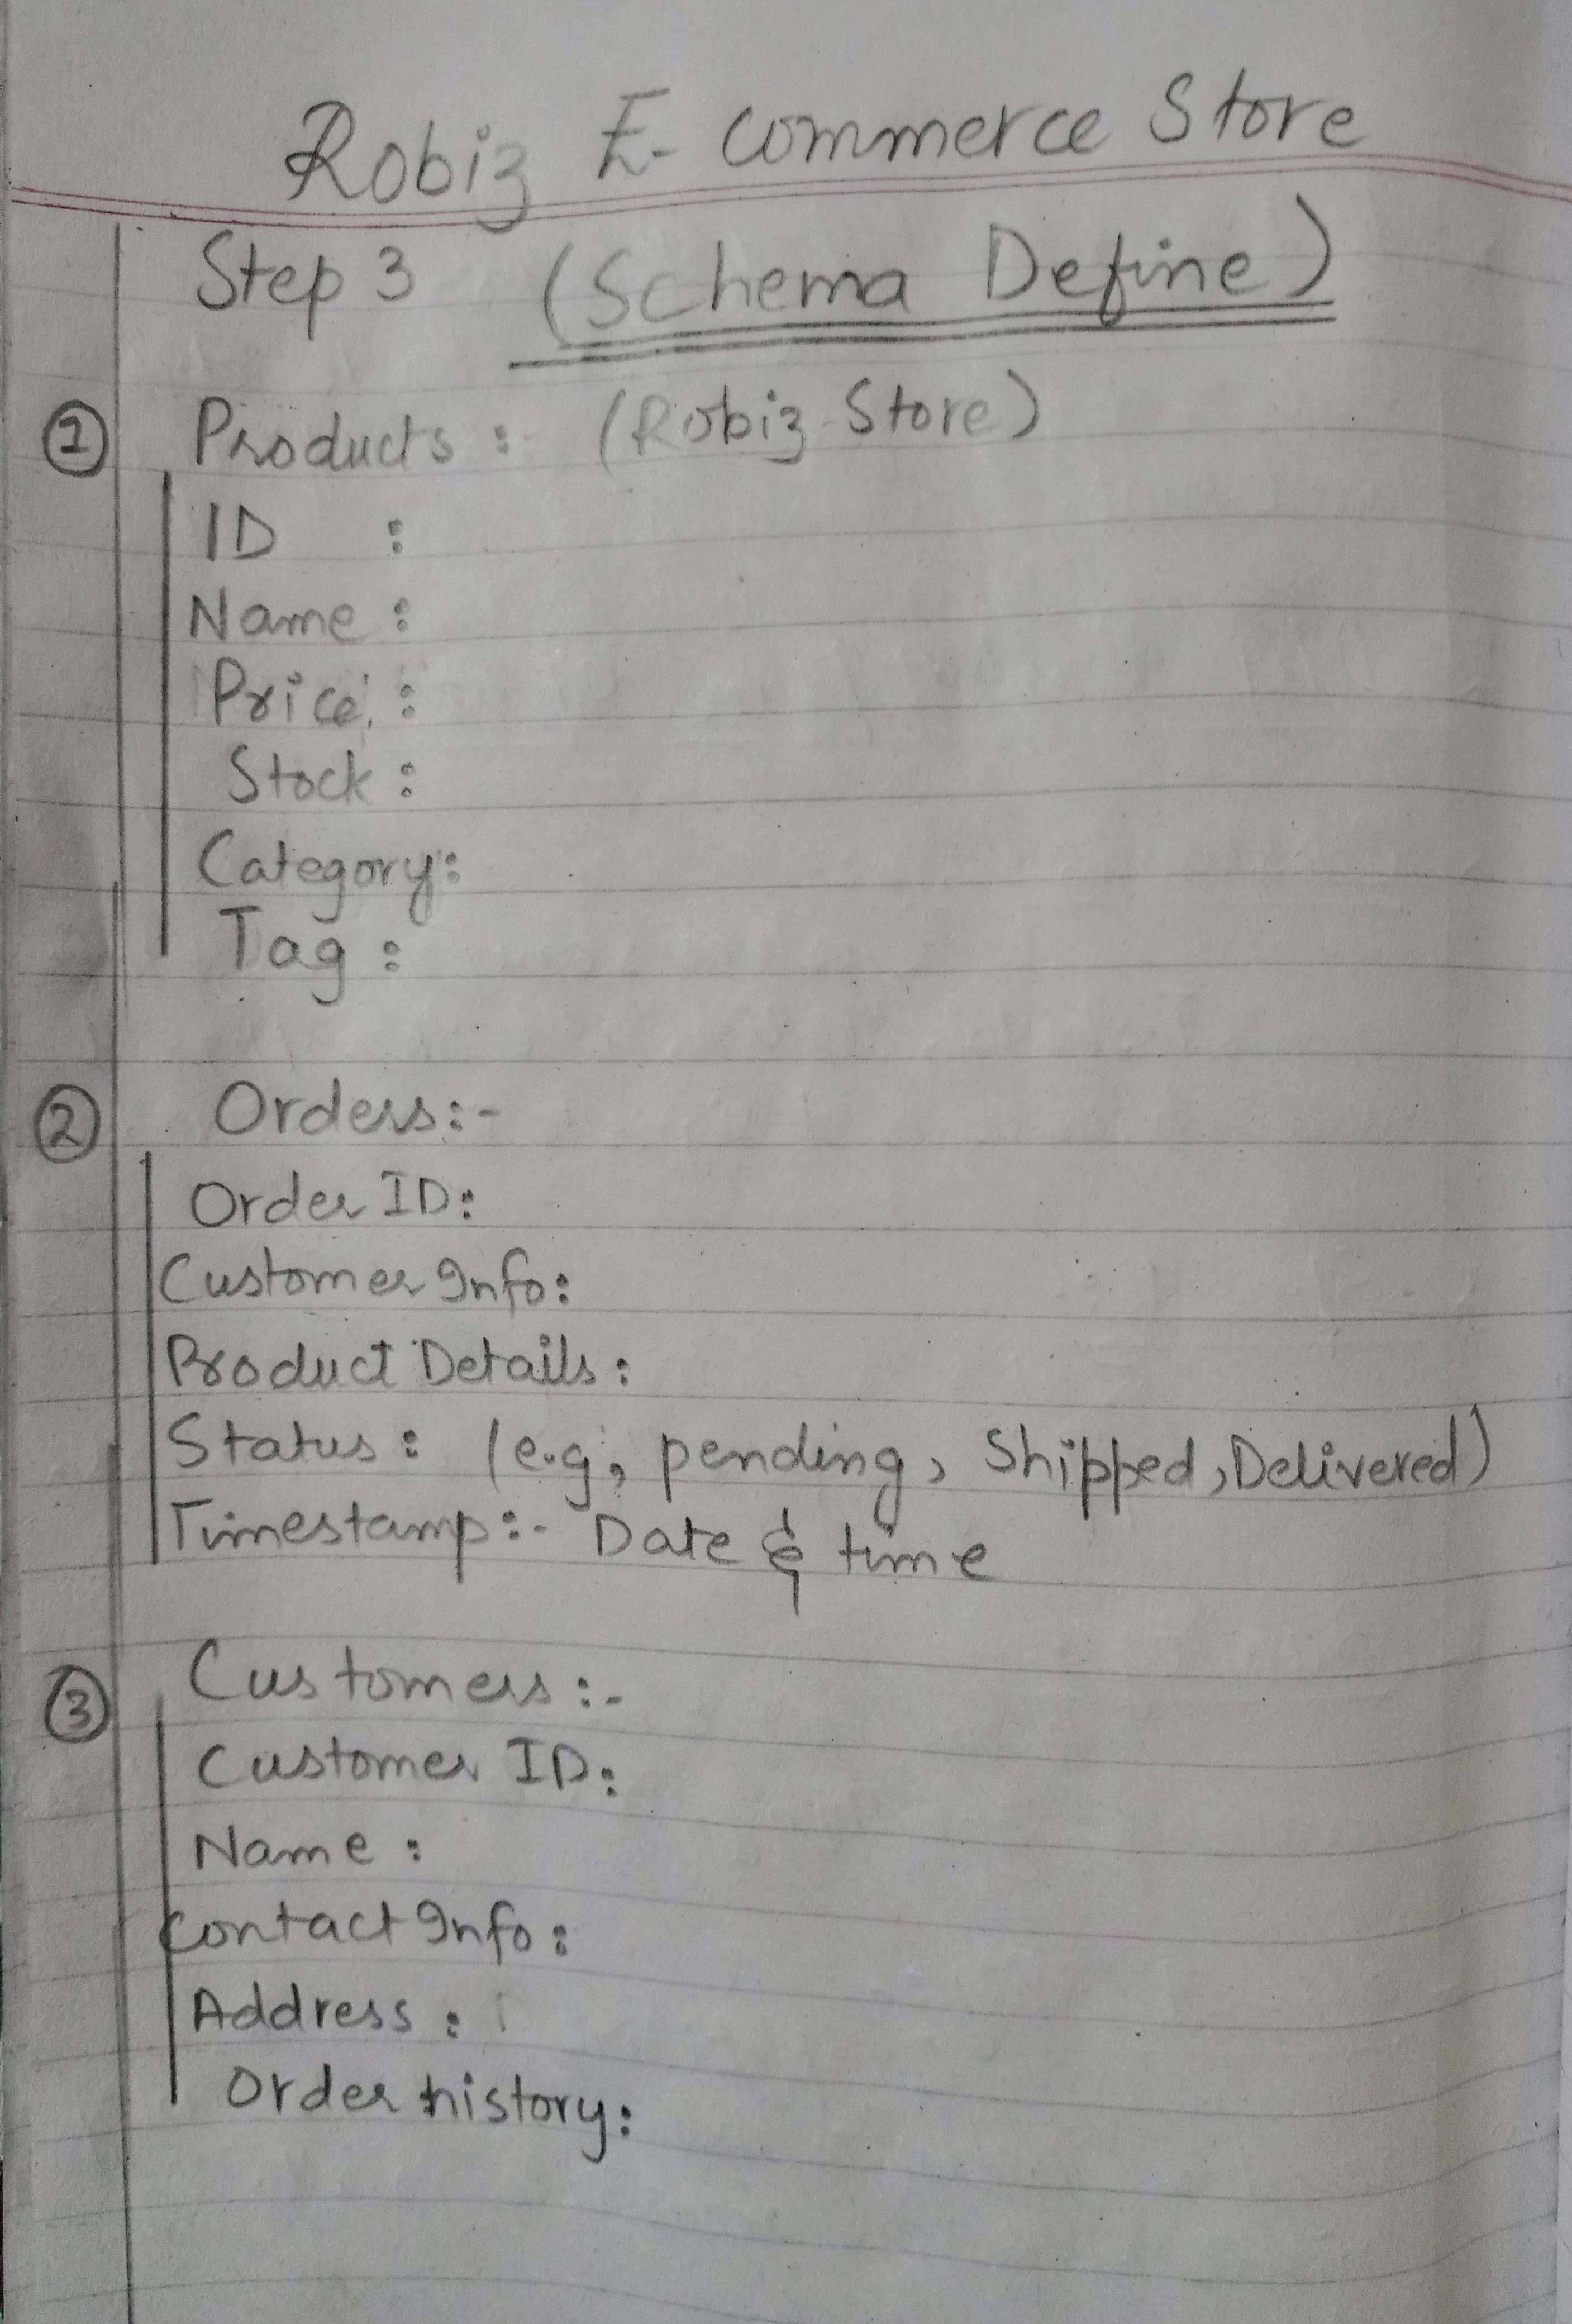 Robiz E- Commerce Store
Step 3 (Schema Define)
① Products :- (Robiz Store)
ID :
Name :
Price :
Stock :
Category:
Tag :
② Orders:-
Order ID:
Customer Info:
Product Details :
Status : (e.g, pending, Shipped, Delivered)
Timestamp:- Date & time
③ Customers :-
Customer ID:
Name :
Contact Info :
Address :
Order history: